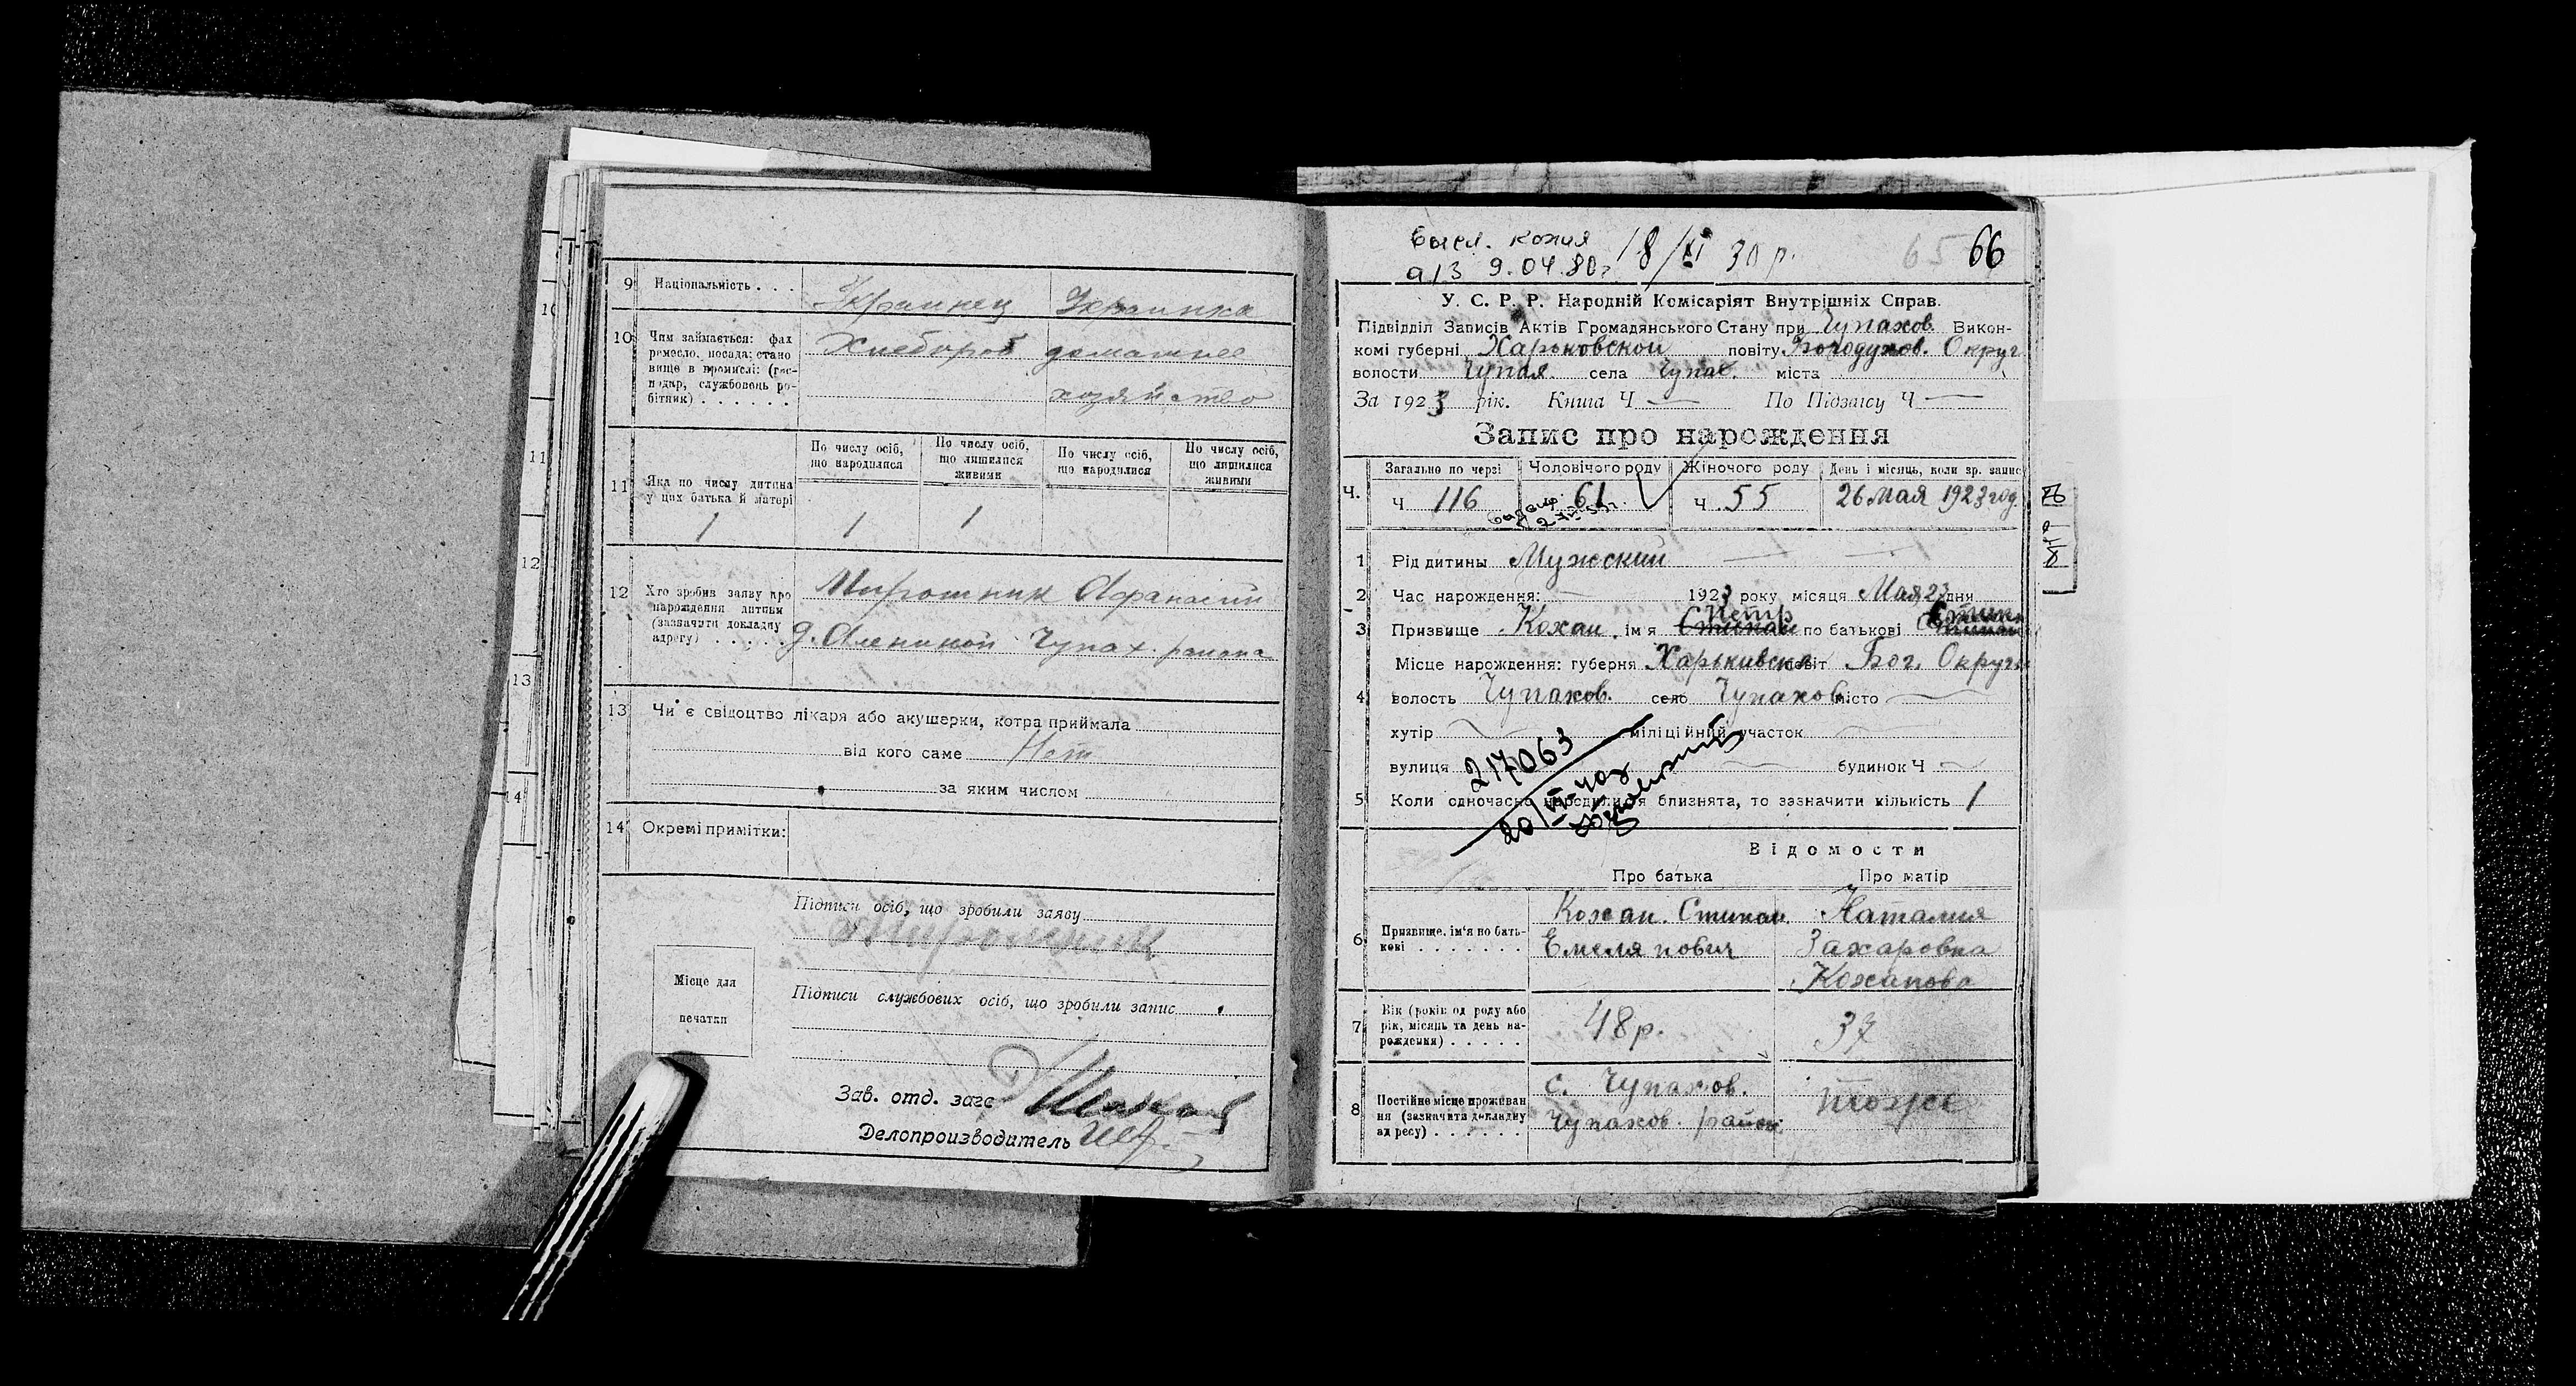 9 Національність . . . Украинец Украинка
10 Чим займається: фах
ремесло, посада; стано
вище в промислі: (гос-
подар, службовець ро-
бітник) . . . . . .
Хлебороб домашнее
хозяйство
11 Яка по числу дитина
у цих батька й матері
По числу осіб,
що народилися
По числу осіб,
що лишилися
живими
По числу осіб,
що народилися
По числу осіб,
що лишилися
живими
1 1 1
12 Хто зробив заяву про
народження дитини
(зазначити докладну
адресу) . . . . .
Мирошник Афанасий
Чупах. района
13 Чи є свідоцтво лікаря або акушерки, котра приймала
від кого саме Нет
за яким числом
14 Окремі примітки:
Підписи осіб, що зробили заяву
Мирошник
Місце для
печатки
Підписи службових осіб, що зробили запис
Зав. отд. загс
Делопроизводитель
10
11
12
13
14
копия 18/XI 30 р. 65 66
9.04.80г
У. С. Р. Р. Народній Комісаріят Внутрішніх Справ.
Підвідділ Записів Актів Громадянського Стану при Чупахов. Викон-
комі губерні Харьковской повіту Богодухов. Округ
волости Чупах. села Чупах. міста
За 1923 рік. Книга Ч — По Підзагсу Ч —
Запис про нарождення
Ч. Загально по черзі Чоловічого роду Жіночого роду День і місяць, коли зр. запис
Ч 116 61 Ч. 55 26 Мая 1923 год.
1 Рід дитини Мужский
2 Час нарождення: 1923 року місяця Мая 23 дня
Петр
3 Призвище Кохан ім'я Степан по батькові
Місце нарождення: губерня Харькивска повіт Бог. Округи
4 волость Чупахов. село Чупахов. місто
хутір міліційний участок
вулиця будинок Ч
217063
5 Коли одночасно народилися близнята, то зазначити кількість 1
Відомости
Про батька Про матір
6 Призвище, ім'я по бать-
кові . . . . . . .
Кохан. Стипан
Емелянович
Наталия
Захаровна
Коханова
7 Вік (років од роду або
рік, місяць та день на-
рождення) . . . . .
48 р. 37
8 Постійне місце проживан
ня (зазначити докладну
адресу) . . . . . .
с. Чупахов.
Чупахов. район.
тоже